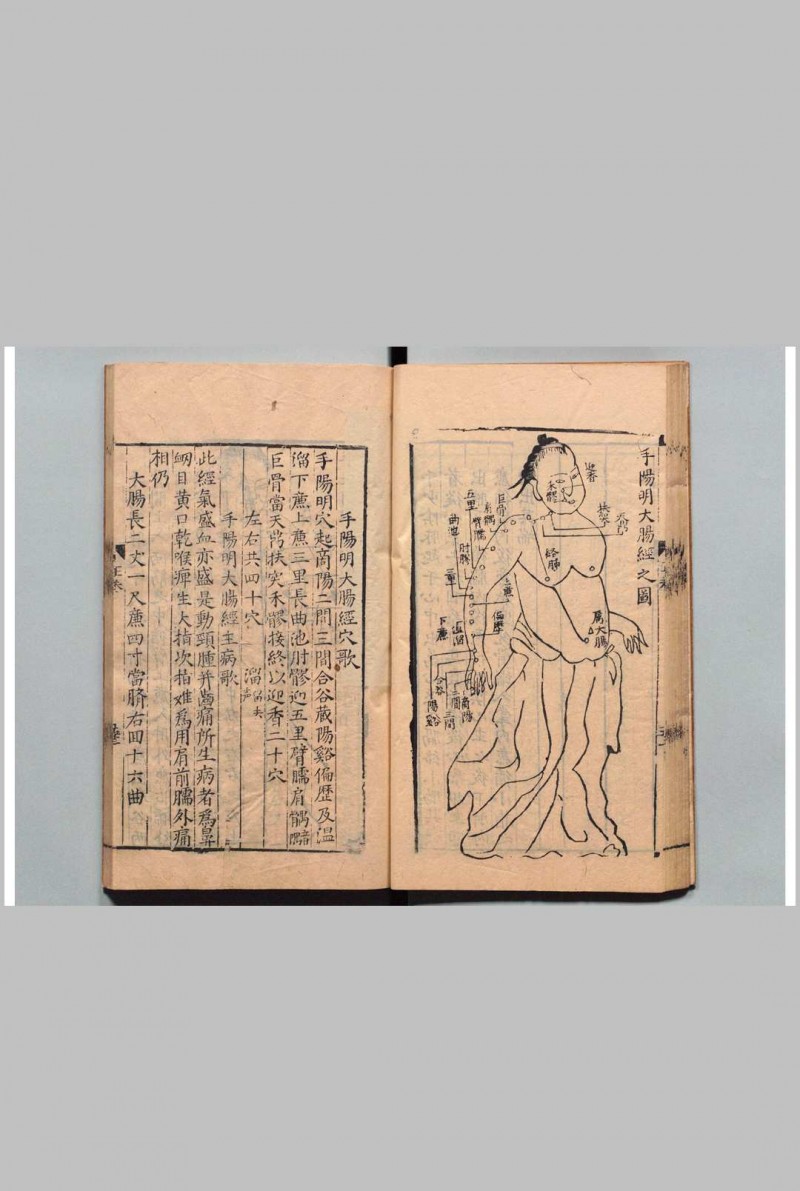 手陽明大腸經之圖
迎香
禾髎
扶突
天鼎
巨骨
肩髃
臂臑
五里
曲池
肘髎
三里
上廉
下廉
溫溜
偏歷
絡肺
屬大腸
合谷
陽谿
三間
二間
商陽
手陽明大腸經穴歌
手陽明穴起商陽二間三間合谷藏陽谿偏歷及溫
溜下廉上廉三里長曲池肘髎迎五里臂臑肩髃
巨骨當天鼎扶突禾髎接終以迎香二十穴
左右共四十穴
手陽明大腸經主病歌
此經氣盛血亦盛是動頸腫并齒痛所生病者為鼻
衂目黃口乾喉痺生大指次指难為用肩前臑外痛
相仍
大腸長二丈一尺廉四寸當臍右回十六曲